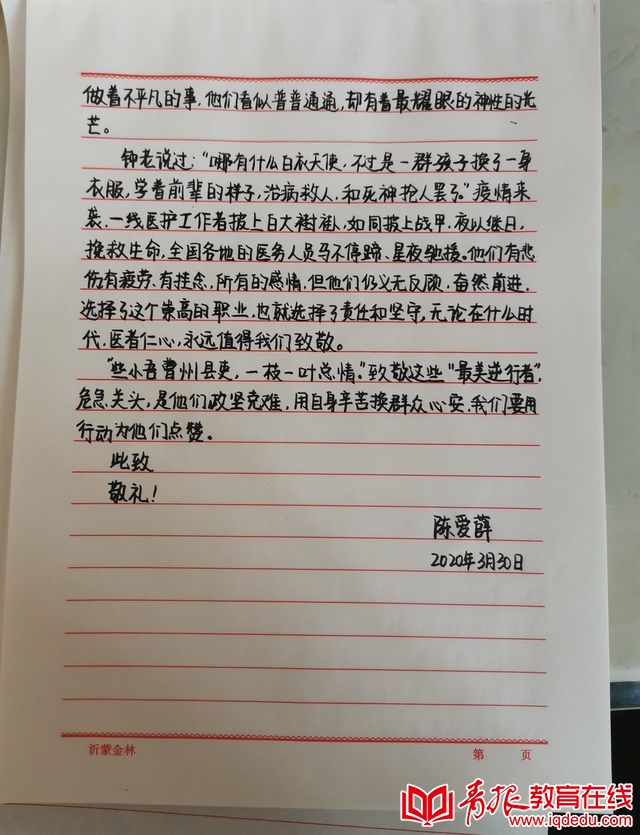 做着不平凡的事，他们看似普普通通，却有着最耀眼的神性的光
芒。
钟老说过：“哪有什么白衣天使，不过是一群孩子换了一身
衣服，学着前辈的样子，治病救人，和死神抢人罢了。”疫情来
袭，一线医护工作者披上白大褂，如同披上战甲，夜以继日，
挽救生命，全国各地的医务人员马不停蹄、星夜驰援。他们有悲
伤有疲劳、有挂念，所有的感情，但他们仍义无反顾，奋然前进，
选择了这个崇高的职业，也就选择了责任和坚守，无论在什么时
代，医者仁心，永远值得我们致敬。
“些小吾曹州县吏，一枝一叶总情。”致敬这些“最美逆行者”，
危急关头，是他们政坚克难，用自身辛苦换群众心安，我们要用
行动为他们点赞。
此致
敬礼！
陈爱薛
2020年3月30日
沂蒙金林 第 页
青报教育在线
www.iqdedu.com